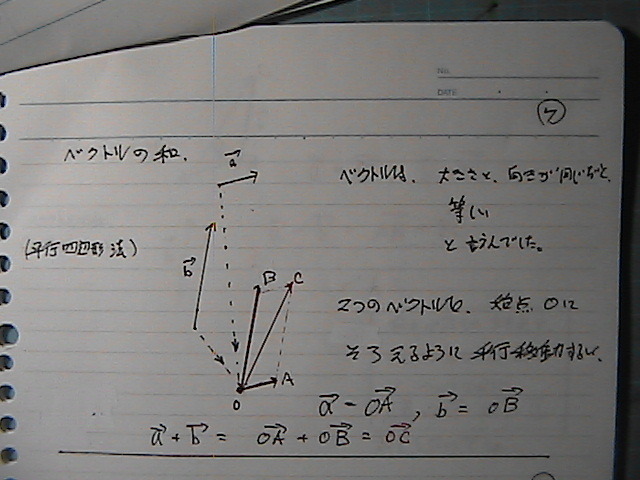 No.
DATE
ク
ベクトルの和.
a
ベクトルは、大きさと、向きが同じだと、
等しい
と言うんでした。
(平行四辺形法)
b
B C
2つのベクトルを、始点Oに
そろえるように平行移動すると、
A
O
a = OA , b = OB
a + b = OA + OB = OC